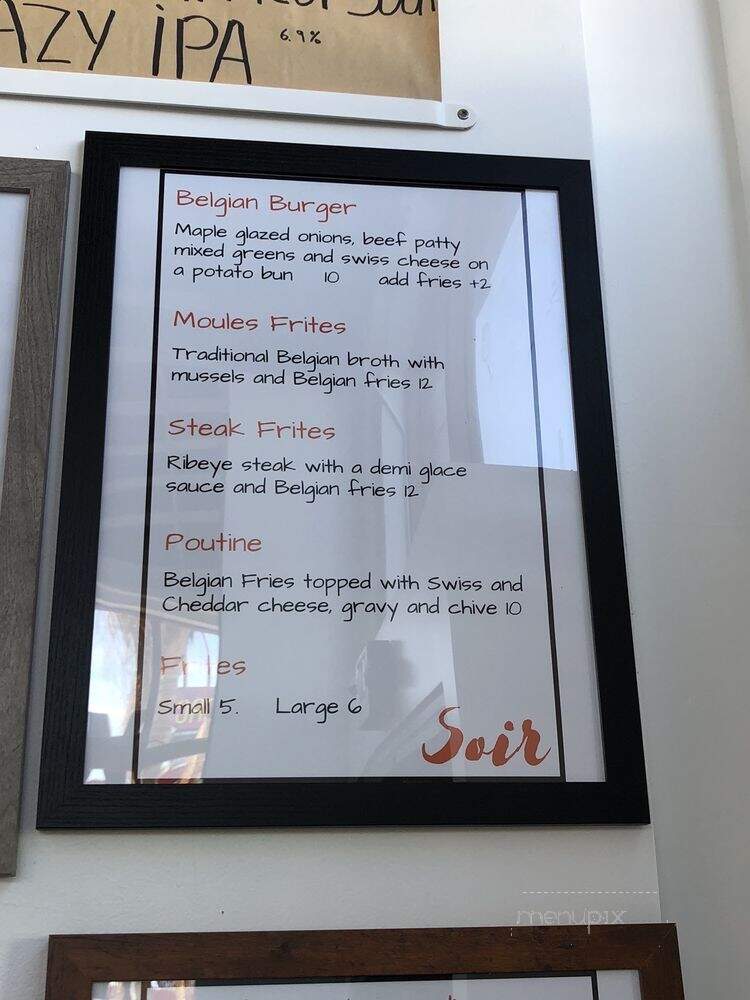 AZY iPA 6.9%
Belgian Burger
Maple glazed onions, beef patty
mixed greens and swiss cheese on
a potato bun 10 add fries +2
Moules Frites
Traditional Belgian broth with
mussels and Belgian fries 12
Steak Frites
Ribeye steak with a demi glace
sauce and Belgian fries 12
Poutine
Belgian Fries topped with Swiss and
Cheddar cheese, gravy and chive 10
Frites
Small 5. Large 6
Soir
menupix